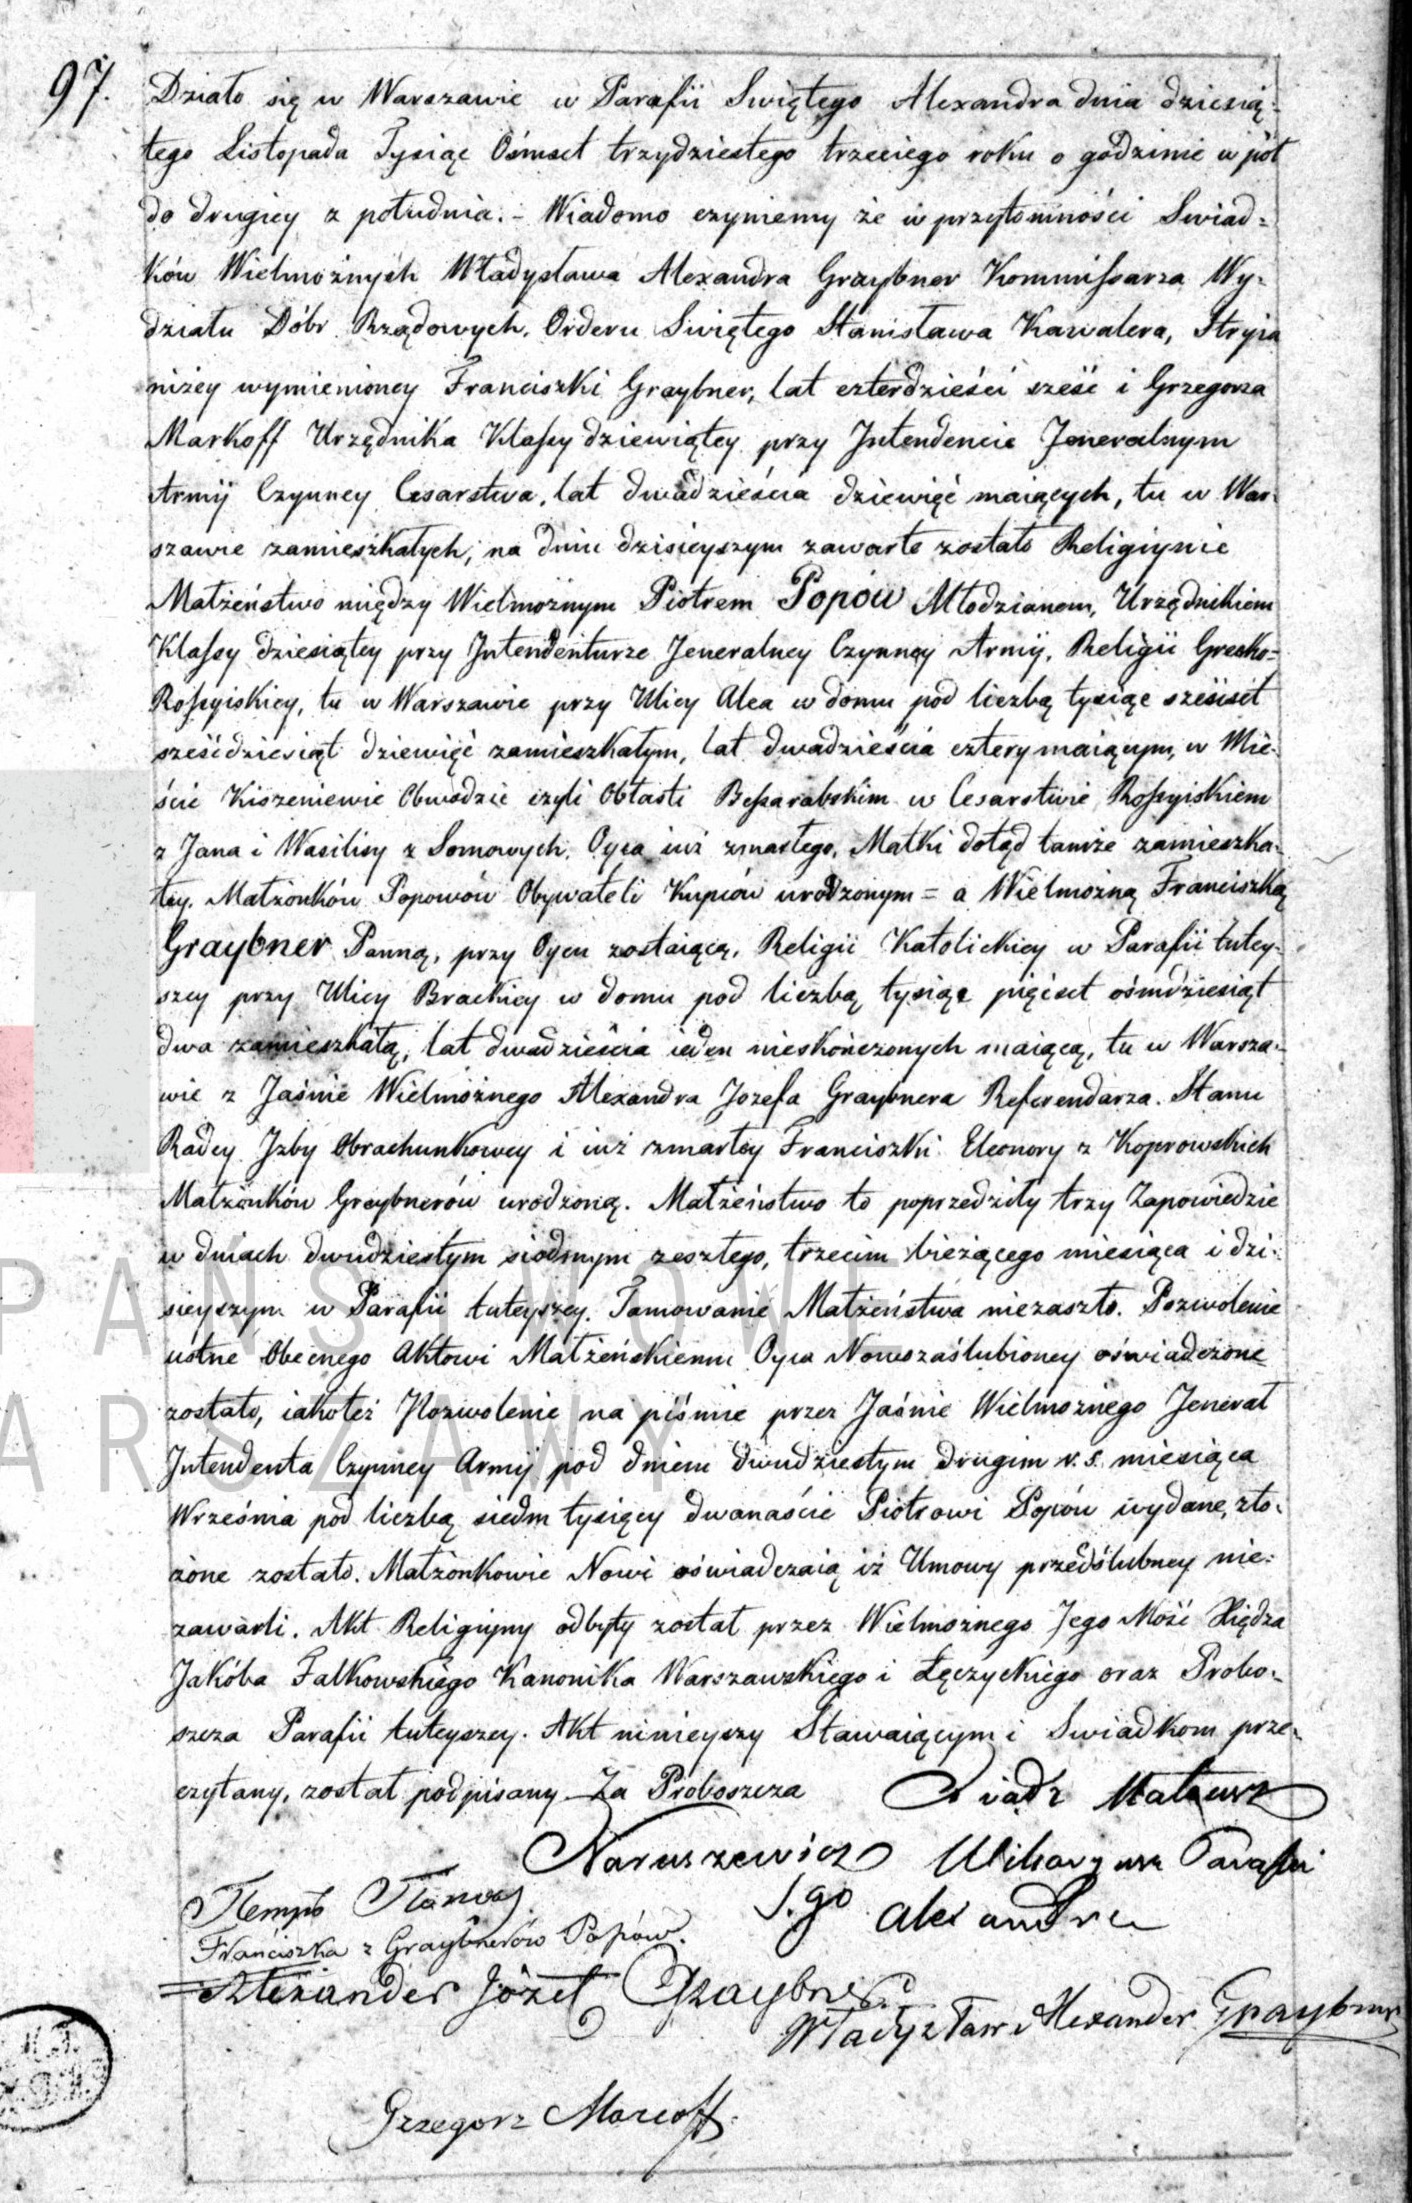 97.
Działo się w Warszawie w Parafii Swiętego Alexandra dnia dziesią-
tego Listopada Tysiąc Ośmset trzydziestego trzeciego roku o godzinie w pół
do drugiey z południa. - Wiadomo czyniemy że w przytomności Swiad=
ków Wielmożnych Władysława Alexandra Graybner Kommissarza Wy-
działu Dóbr Rządowych, Orderu Swiętego Stanisława Kawalera, Stryia
niżey wymienioney Franciszki Graybner, lat czterdzieści sześć i Grzegorza
Markoff Urzędnika Klassy dziewiątey przy Intendencie Jeneralnym
Armij Czynney Cesarstwa, lat dwadzieścia dziewięć maiących, tu w War-
szawie zamieszkałych, na dniu dzisieyszym zawarte zostało Religiynie
Małżeństwo między Wielmożnym Piotrem Popów Młodzianem, Urzędnikiem
Klassy dziesiątey przy Intendenturze Jeneralney Czynney Armij, Religii Grecko=
Rossyiskiey, tu w Warszawie przy Ulicy Alea w domu pod liczbą tysiąc sześćset
sześćdziesiąt dziewięć zamieszkałym, lat dwadzieścia cztery maiącym, w Mie-
ście Kiszeniewie Obwodzie czyli Obłasti Bessarabskim w Cesarstwie Rossyiskiem
z Jana i Wasilisy z Somowych, Oyca iuż zmarłego, Matki dotąd tamże zamieszka-
łey, Małżonków Popowów Obywateli Kupców urodzonym = a Wielmożną Franciszką
Graybner Panną, przy Oycu zostaiącą, Religii Katolickiey w Parafii tutey-
szey przy Ulicy Brackiey w domu pod liczbą tysiąc pięćset ośmdziesiąt
dwa zamieszkałą, lat dwadzieścia ieden nieskończonych maiącą, tu w Warsza-
wie z Jaśnie Wielmożnego Alexandra Jozefa Graybnera Referendarza Stanu
Radcy Izby Obrachunkowey i iuż zmarłey Franciszki Eleonory z Koprowskich
Małżonków Graybnerów urodzoną. Małżeństwo to poprzedziły trzy Zapowiedzie
w dniach dwudziestym siodmym zeszłego, trzecim bieżącego miesiąca i dzi-
sieyszym w Parafii tuteyszey. Tamowanie Małżeństwa niezaszło. Pozwolenie
ustne Obecnego Aktowi Małżeńskiemu Oyca Nowozaślubioney oświadczone
zostało, iakoteż Pozwolenie na piśmie przez Jaśnie Wielmożnego Jenerał
Intendenta Czynney Armij pod dniem dwudziestym drugim v. s. miesiąca
Września pod liczbą siedm tysięcy dwanaście Piotrowi Popów wydane, zło-
żone zostało. Małżonkowie Nowi oświadczaią iż Umowy przedślubney nie-
zawarli. Akt Religiyny odbyty został przez Wielmożnego Jego Mość Xiędza
Jakóba Falkowskiego Kanonika Warszawskiego i Łęczyckiego oraz Probo-
szcza Parafii tuteyszey. Akt ninieyszy Stawaiącym i Swiadkom prze-
czytany, został podpisany. Za Proboszcza Xiądz Mateusz
Naruszewicz Wikaryusz Parafii
S.go Alexandra
Franciszka z Graybnerów Popów.
Alexander Józef Graybner
Władysław Alexander Graybner
Grzegorz Marcoff.
PAŃSTWOWE
ARSZAWY